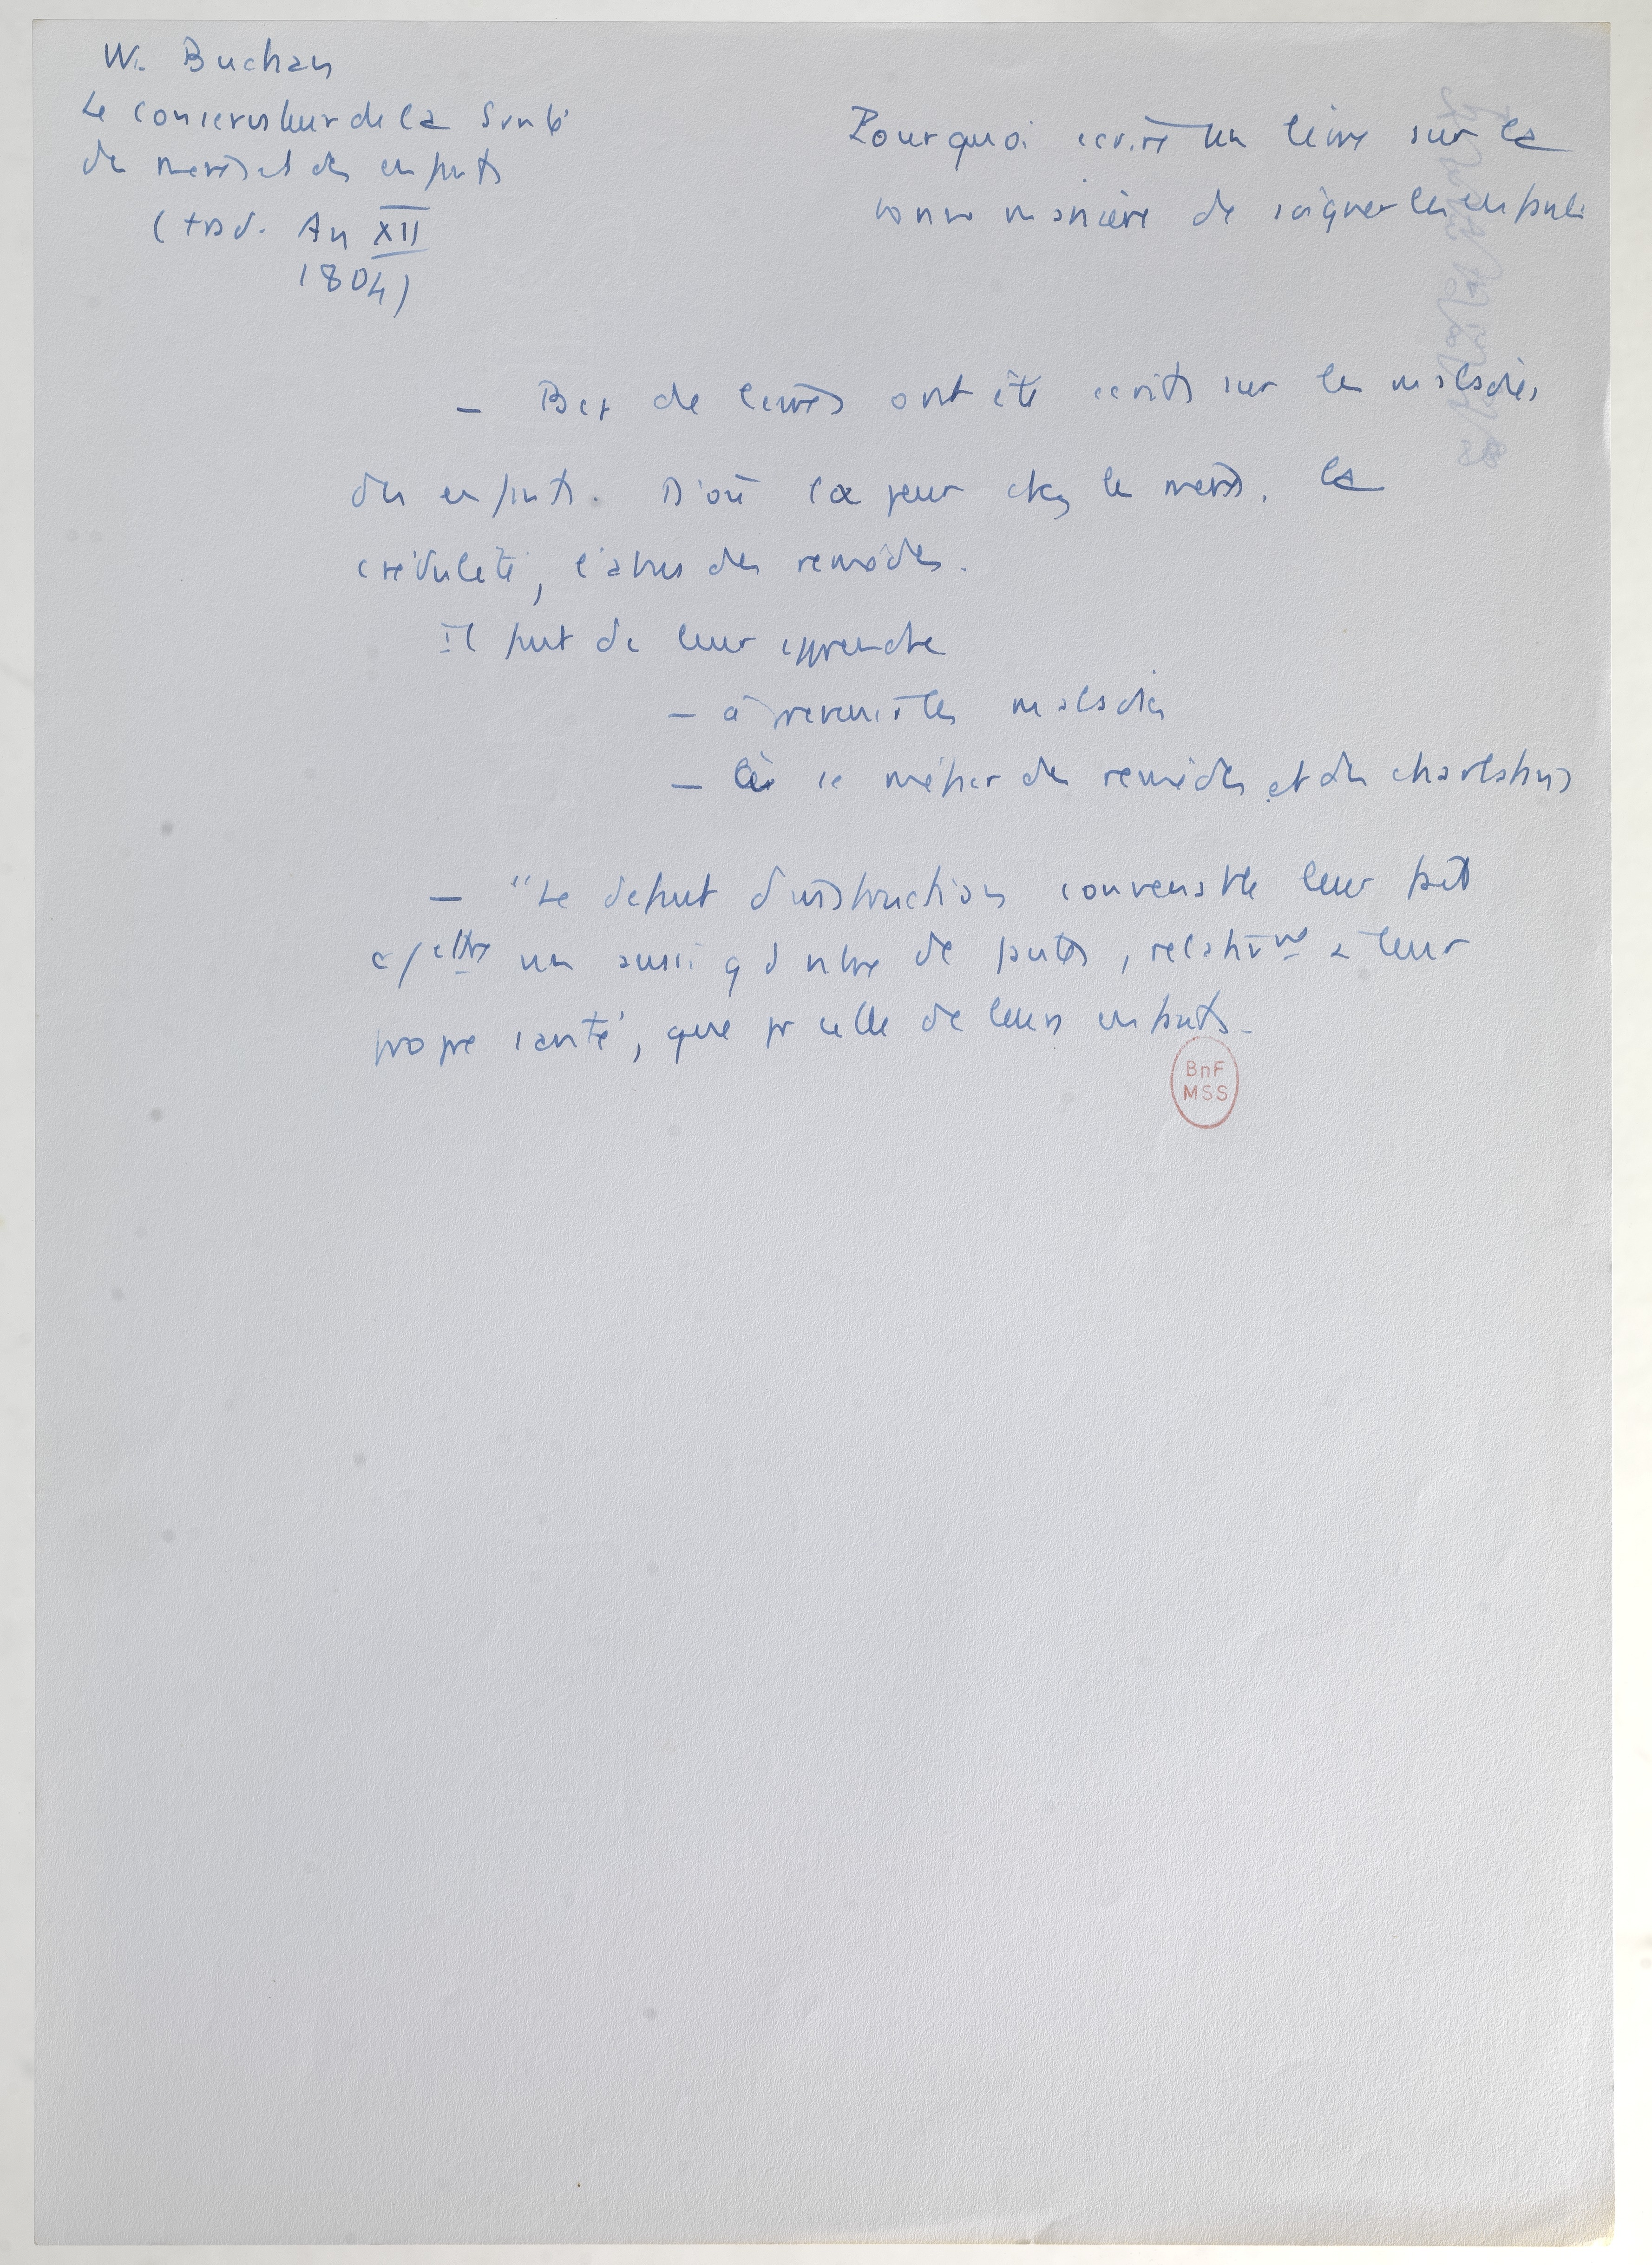 W. Buchan
Le conservateur de la Santé
des mères et des enfants
(trad. An XII
1804)
Pourquoi écrire un livre sur la
bonne manière de soigner les enfants
- Bcp de livres ont été écrits sur les maladies
des enfants. D'où la peur chez les mères, la
crédulité, l'abus des remèdes.
Il faut de leur apprendre
- à prévenir les maladies
- à se méfier des remèdes et des charlatans
- "Le défaut d'instruction convenable leur fait
commettre un aussi gd nbre de fautes, relativnt à leur
propre santé, que pr celle de leurs enfants.
BnF
MSS